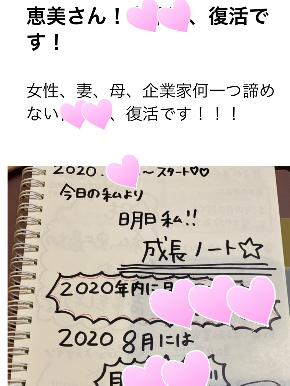 恵美さん！、復活で
す！
女性、妻、母、企業家何一つ諦め
ない、復活です！！！
2020.〜スタート♡♡
今日の私より
明日私!!
成長ノート☆
2020年内に
2020 8月には